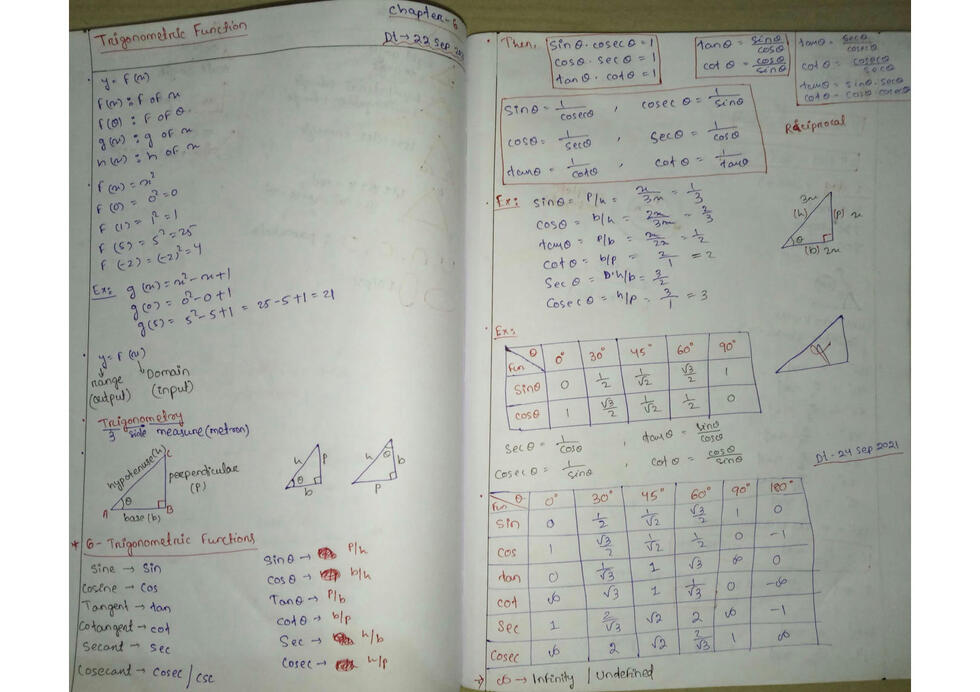 Chapter-6
Trigonometric Function
Dt→22 Sep
y = f (x)
f(x) : f of x
f(θ) : f of θ
g(x) : g of x
h(x) : h of x
f(x) = x²
f(0) = 0² = 0
f(1) = 1² = 1
f(5) = 5² = 25
f(-2) = (-2)² = 4
Ex: g(x) = x² - x + 1
g(0) = 0² - 0 + 1
g(5) = 5² - 5 + 1 = 25 - 5 + 1 = 21
y = f (x)
range Domain
(output) (input)
Trigonometry
3 side measure (metron)
hypotenuse(h) C
perpendicular
(p)
A θ B
base (b)
h p θ b
h θ b p
* 6 - Trigonometric Functions
Sine → Sin
Cosine → Cos
Tangent → tan
Cotangent → cot
Secant → sec
Cosecant → Cosec / csc
Sinθ → P/h
Cosθ → b/h
Tanθ → P/b
cotθ → b/p
Sec → h/b
Cosec → h/p
Then, Sinθ · cosecθ = 1
cosθ · secθ = 1
tanθ · cotθ = 1
tanθ = sinθ/cosθ
cotθ = cosθ/sinθ
tanθ = secθ/cosecθ
cotθ = cosecθ/secθ
tanθ = sinθ · secθ
cotθ = cosθ · cosecθ
Sinθ = 1/cosecθ , cosecθ = 1/sinθ
cosθ = 1/secθ , secθ = 1/cosθ
tanθ = 1/cotθ , cotθ = 1/tanθ
Reciprocal
Ex: sinθ = P/h = x/3x = 1/3
cosθ = b/h = 2x/3x = 2/3
tanθ = P/b = x/2x = 1/2
cotθ = b/p = 2/1 = 2
Secθ = h/b = 3/2
Cosecθ = h/p = 3/1 = 3
3x
(h) (p) x
θ
(b) 2x
Ex:
Fun θ 0° 30° 45° 60° 90°
Sinθ 0 1/2 1/√2 √3/2 1
cosθ 1 √3/2 1/√2 1/2 0
Secθ = 1/cosθ , tanθ = sinθ/cosθ
Cosecθ = 1/sinθ , cotθ = cosθ/sinθ
Dt-24 Sep 2021
Fun θ 0° 30° 45° 60° 90° 180°
Sin 0 1/2 1/√2 √3/2 1 0
Cos 1 √3/2 1/√2 1/2 0 -1
tan 0 1/√3 1 √3 ∞ 0
Cot ∞ √3 1 1/√3 0 -∞
Sec 1 2/√3 √2 2 ∞ -1
Cosec ∞ 2 √2 2/√3 1 ∞
→ ∞ → Infinity / Undefined